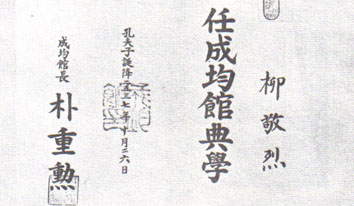 柳敬烈
任成均館典學
孔夫子誕降二五三七年十月二六日
成均館長
朴重勲